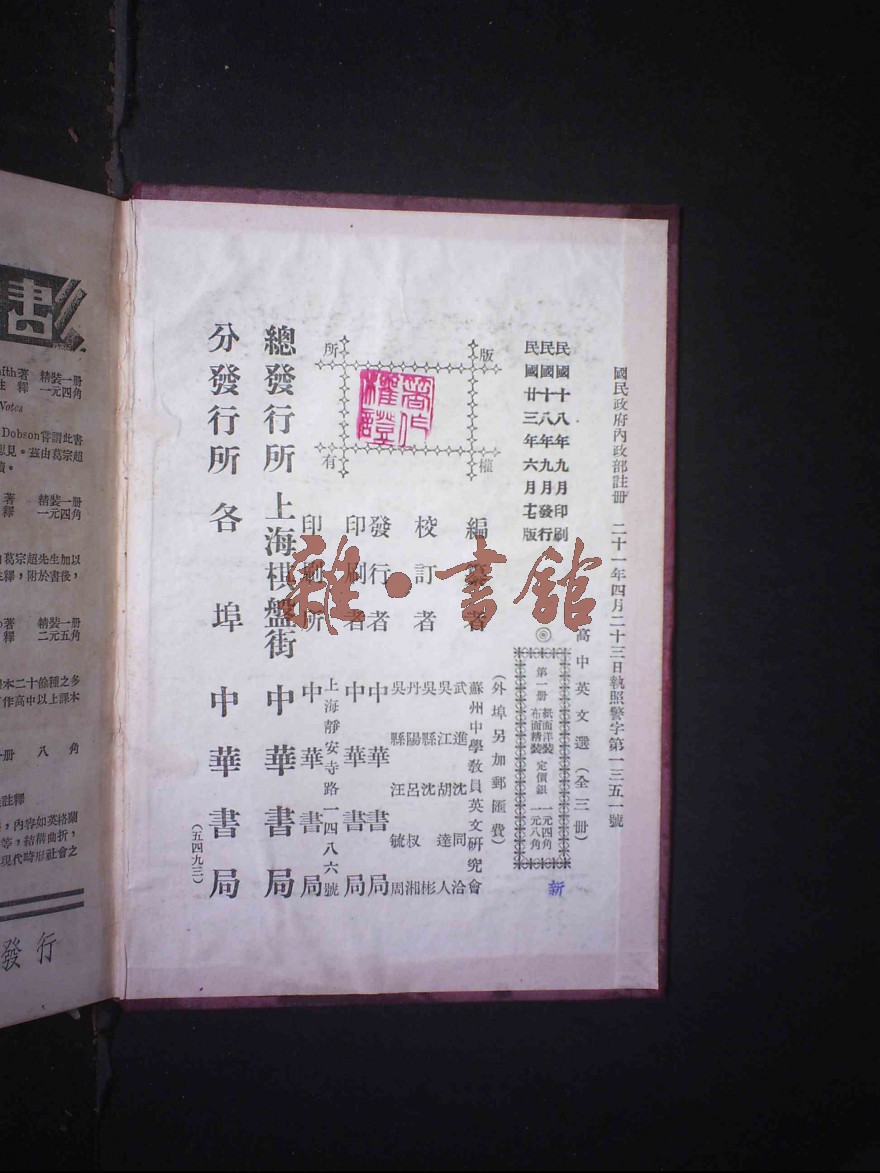 國民政府內政部註冊 二十一年四月二十三日執照警字第一三五一號
民國十八年九月印刷
民國十八年九月發行
民國廿三年六月七版
高中英文選（全三冊）
第一冊 紙面洋裝 布面精裝 定價銀 一元四角 一元八角
（外埠另加郵匯費）
新
版權所有
著作權證
編纂者 蘇州中學教員英文研究會
校訂者 武進沈同洽
吳江胡達人
吳縣沈彬
丹陽呂叔湘
吳縣汪毓周
發行者 中華書局
印刷者 中華書局
印刷所 上海靜安寺路一四八六號 中華書局
總發行所 上海棋盤街 中華書局
分發行所 各埠 中華書局
（五四九三）
雜·書館
書
ith著 精裝一冊
註釋 一元四角
Notes
Dobson嘗謂此書
思見。茲由葛宗超
著 精裝一冊
釋 一元四角
葛宗超先生加以
註釋，附於書後，
著 精裝一冊
釋 二元五角
本二十餘種之多
作高中以上課本
冊 八角
註釋
，內容如英格蘭
等，結構曲折，
現代畸形社會之
發行